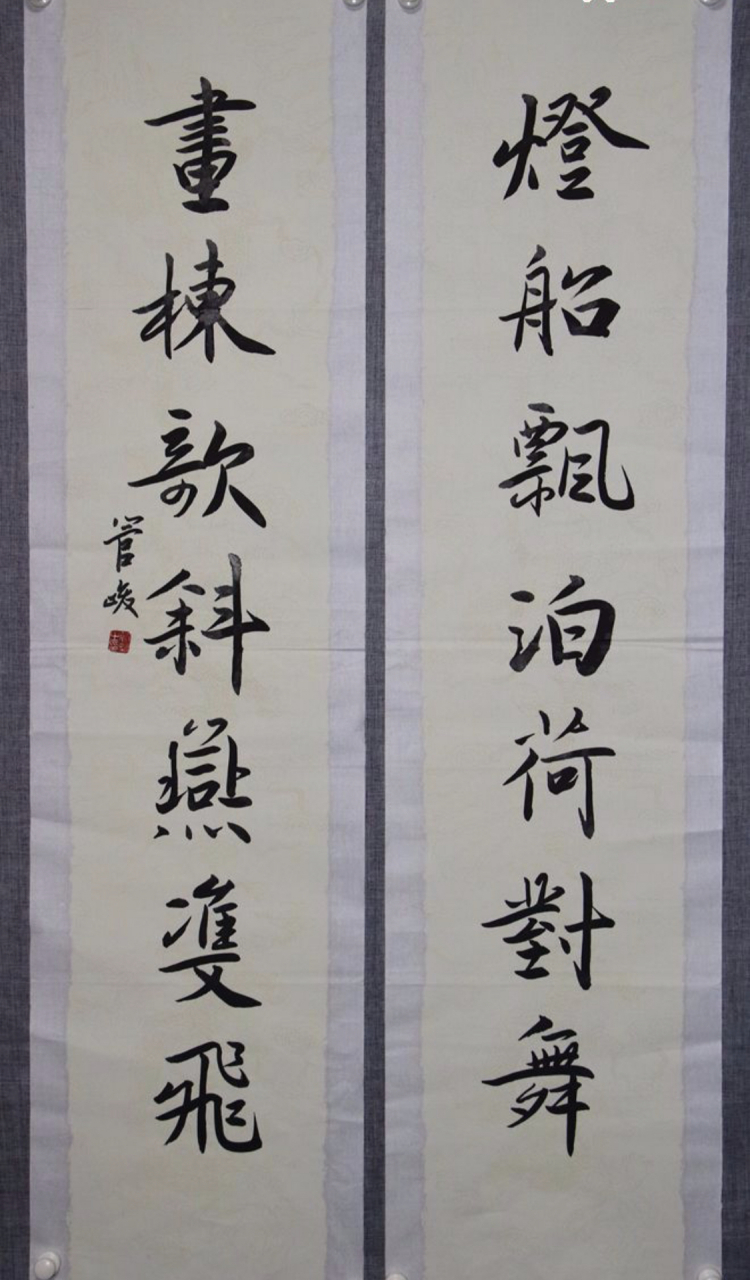 燈船飄泊荷對舞
畫棟歌斜燕雙飛
管峻